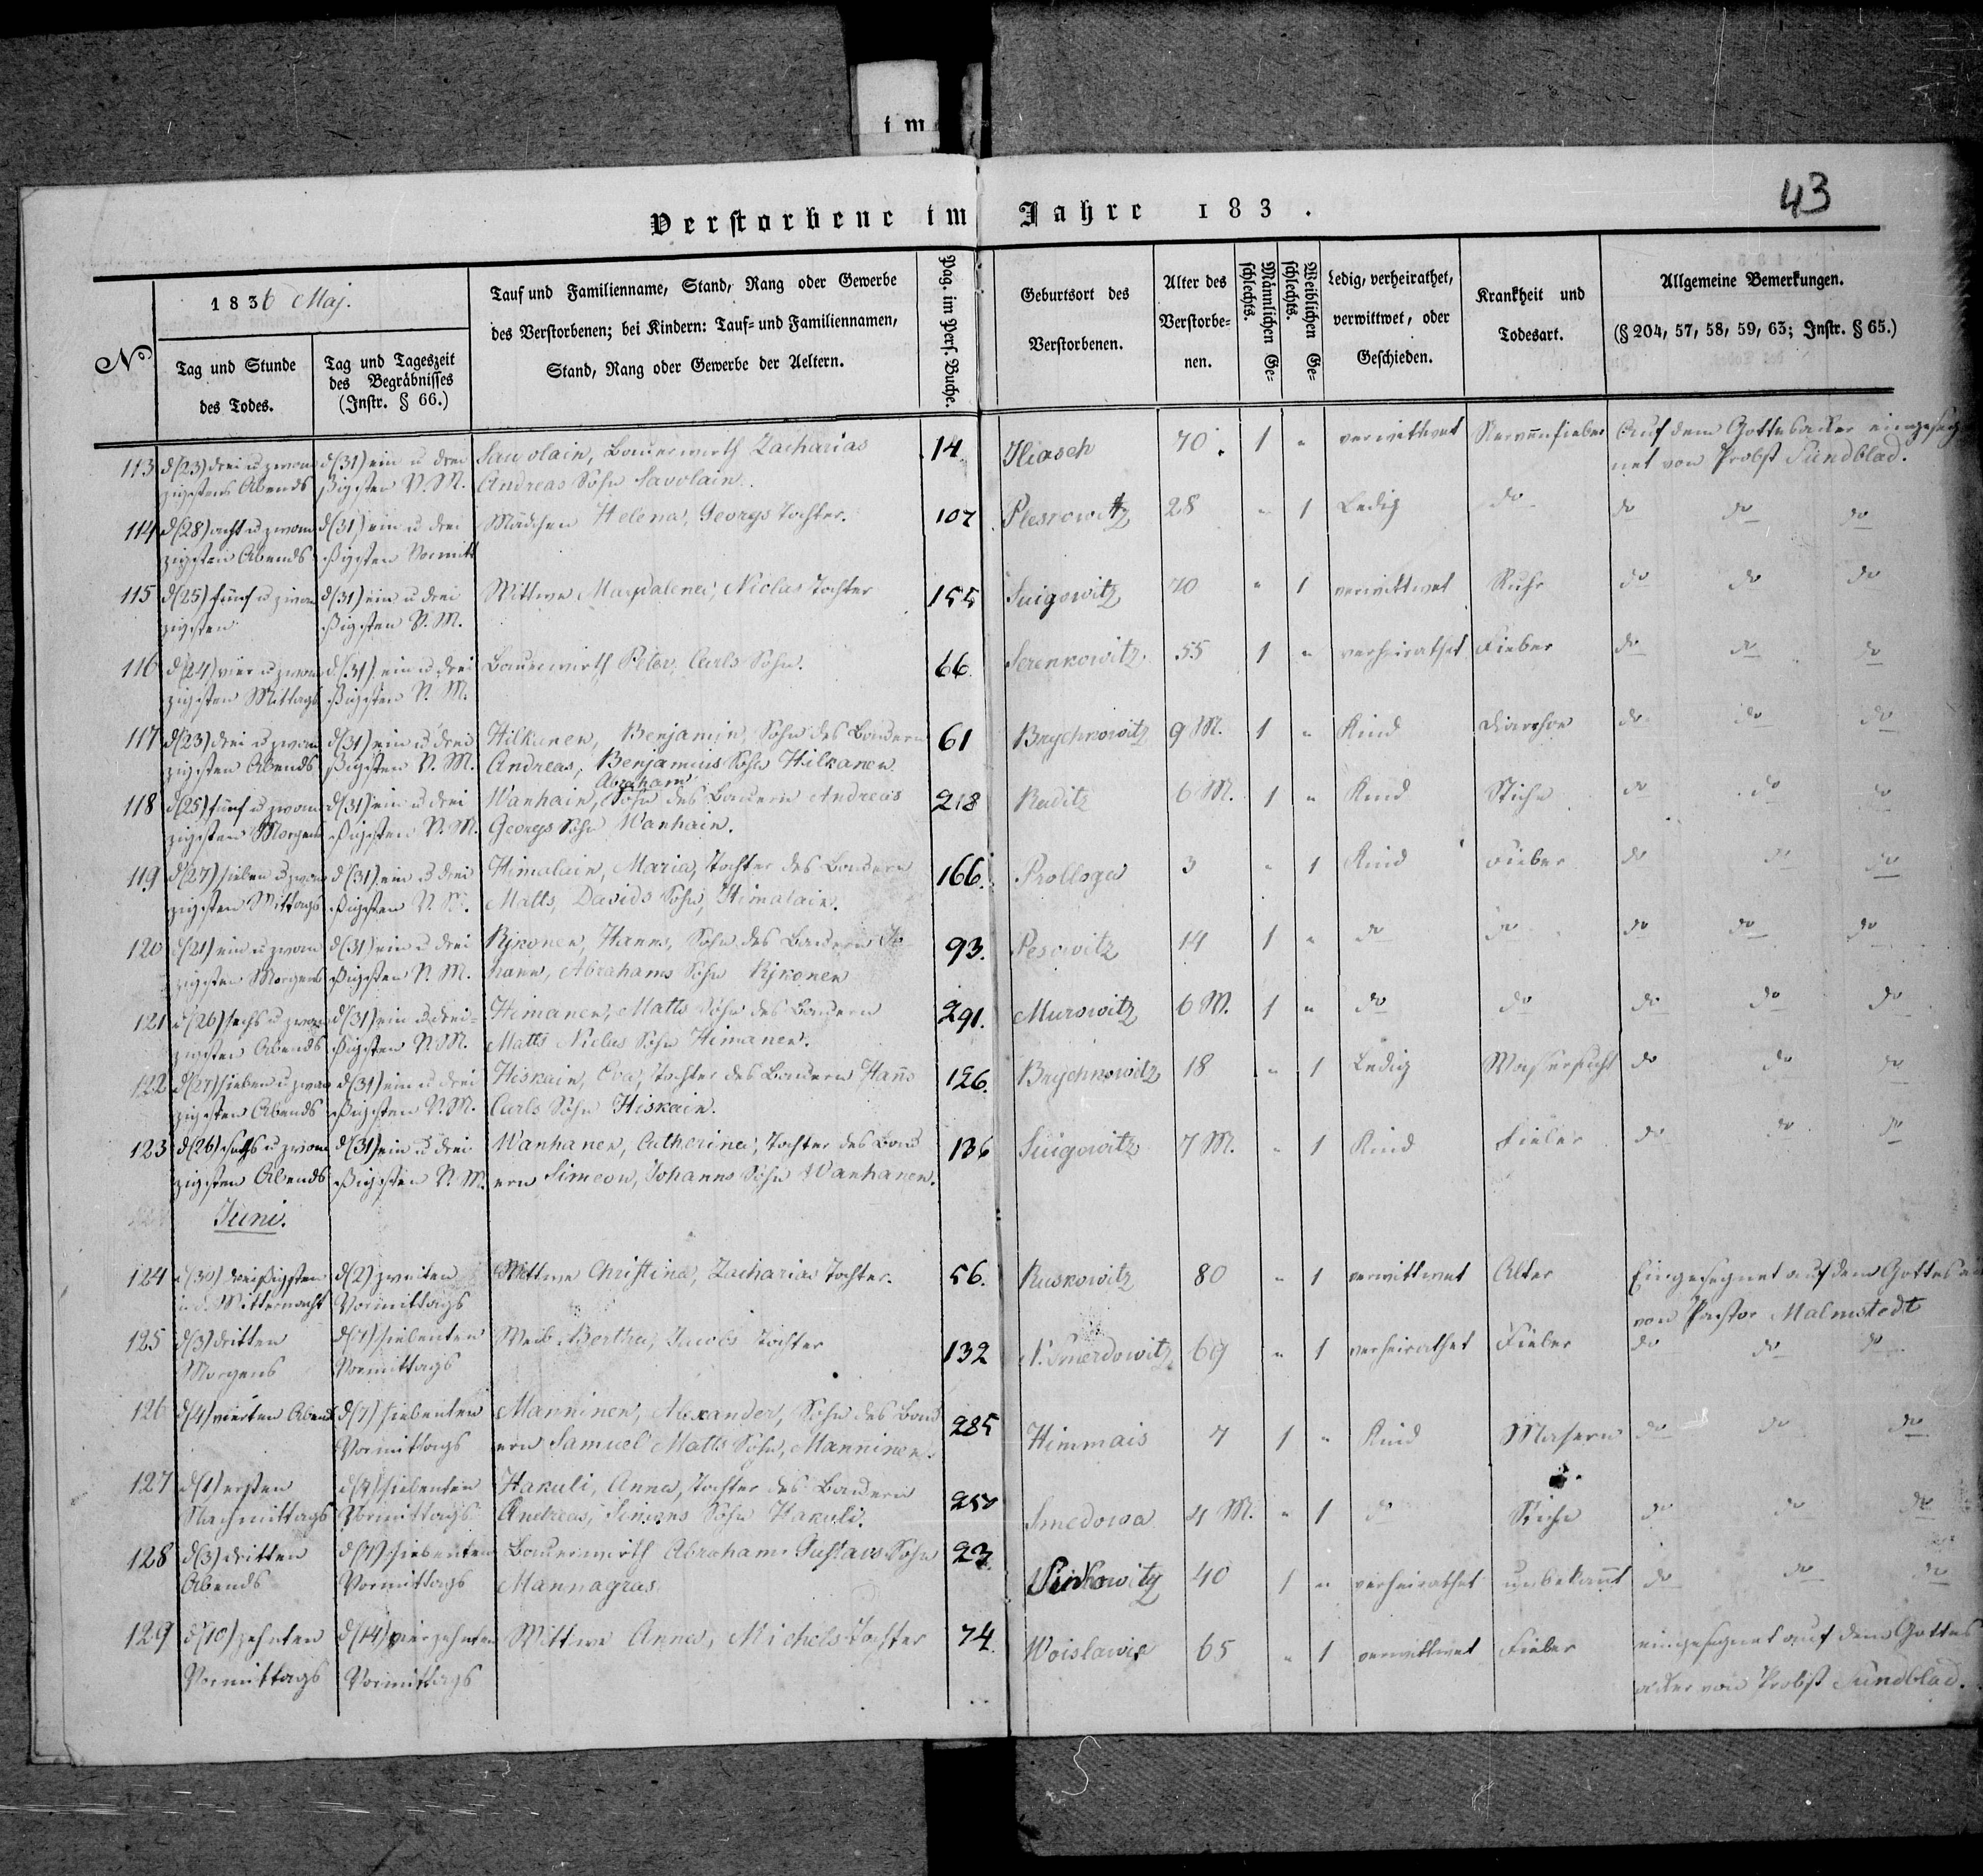 im
43
Verstorbene im Jahre 183 .
No
1836 Maj.
Tag und Stunde des Todes.
Tag und Tageszeit des Begräbnisses (Instr. § 66.)
Tauf und Familienname, Stand, Rang oder Gewerbe
des Verstorbenen; bei Kindern: Tauf- und Familiennamen,
Stand, Rang oder Gewerbe der Aeltern.
Pag. im Pers. Buche.
Geburtsort des Verstorbenen.
Alter des Verstorbe- nen.
Männlichen Ge- schlechts.
Weiblichen Ge- schlechts.
Ledig, verheirathet, verwittwet, oder Geschieden.
Krankheit und Todesart.
Allgemeine Bemerkungen.
(§ 204, 57, 58, 59, 63; Instr. § 65.)
113 d (23) drei u zwan d (31) ein u drei Savolain, Bauerwirth Zacharias 14 Iliasch 70. 1 " verwittwet Nervenfieber Auf dem Gottesacker eingeseg
zigsten Abends ßigsten V. M. Andreas Sohn Savolain. net von Probst Sundblad.
114 d (28) acht u zwan d (31) ein u drei Mädchen Helena, Georgs Tochter. 107 Pleskowitz 28 " 1 Ledig do do do do
zigsten Abends ßigsten Vormitt
115 d (25) fünf u zwan d (31) ein u drei Wittwe Magdalena, Niclas Tochter 155 Suigowitz 70 " 1 verwittwet Ruhr do do do
zigsten ßigsten V. M.
116 d (24) vier u zwan d (31) ein u drei Bauerwirth Peter, Carls Sohn. 66 Serenkowitz 55 1 " verheirathet Fieber do do do
zigsten Mittags ßigsten V. M.
117 d (23) drei u zwan d (31) ein u drei Hilkanen, Benjamin, Sohn des Bauern 61 Brychkowitz 9 M. 1 " Kind Diarrhoe do do do
zigsten Abends ßigsten V. M. Andreas, Benjamins Sohn Hilkanen
Abraham
118 d (25) fünf u zwan d (31) ein u drei Wanhain, Sohn des Bauern Andreas 218 Raditz 6 M. 1 " Kind do do do
zigsten Morgens ßigsten V. M. Georgs Sohn Wanhain.
119 d (27) sieben u zwan d (31) ein u drei Himalain, Maria, Tochter des Bauern 166. Prologa 3 " 1 Kind Fieber do do do
zigsten Mittags ßigsten V. M. Matts, Davids Sohn, Himalain.
120 d (21) ein u zwan d (31) ein u drei Rjkonen, Hanns, Sohn des Bauern Jo 93. Pesowitz 14 1 " do do do do do
zigsten Morgens ßigsten V. M. hann, Abrahams Sohn Rjkonen
121 d (26) sechs u zwan d (31) ein u drei- Himanen, Matts Sohn des Bauern 291. Murowitz 6 M. 1 " do do do do do
zigsten Abends ßigsten V. M. Matts Niclas Sohn Himanen.
122 d (27) sieben u zwan d (31) ein u drei Hiskain, Eva, Tochter des Bauern Hans 126. Brychkowitz 18 " 1 Ledig Wassersucht do do do
zigsten Abends ßigsten V. M. Carls Sohn Hiskain.
123 d (26) sechs u zwan d (31) ein u drei Wanhanen, Catharina, Tochter des Bau 136 Suigowitz 7 M. " 1 Kind Fieber do do do
zigsten Abends ßigsten V. M. ern Simeon, Johanns Sohn Wanhanen.
Juni.
124 d (30) dreißigsten d (2) zweiten Wittwe Christina, Zacharias Tochter. 56. Ruskowitz 80 " 1 verwittwet Alter Eingesegnet auf dem Gottes
Mitternacht Vormittags von Pastor Malmstedt
125 d (3) dritten d (7) siebenten Weib Bertha, Jacobs Tochter 132 N. Smerdowitz 69 " 1 verheirathet Fieber do do do
Morgens Vormittags
126 d (4) vierten Abend d (7) siebenten Manninen, Alexander, Sohn des Bau 285 Himmais 7 1 " Kind Masern do do do
Vormittags ern Samuel Matts Sohn, Manninen.
127 d (1) ersten d (7) siebenten Hakuli, Anna, Tochter des Bauern 250 Smedowa 4 M. " 1 do do do do
Nachmittags Vormittags Andreas, Simons Sohn Hakuli.
128 d (3) dritten d (7) siebenten Bauerwirth Abraham Gustavs Sohn 23. 40 1 " verheirathet unbekannt do do do
Abends Vormittags Mannagras
129 d (10) zehnten d (14) vierzehnten Wittwe Anna, Michels Tochter 74. Woislawis 65 " 1 verwittwet Fieber eingesegnet auf dem Gottes
Vormittags Vormittags acker von Probst Sundblad.